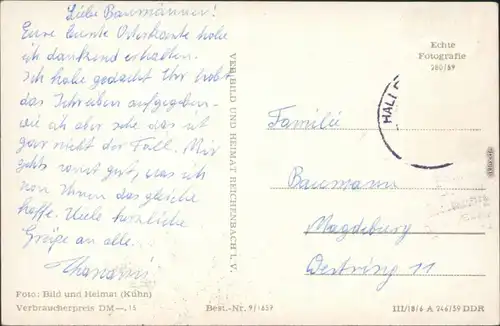 Liebe Baumänner!
Eure bunte Osterkarte habe
ich dankend erhalten.
Ich habe gedacht Ihr habt
das Schreiben aufgegeben -
wie ich aber sehe das ist
gar nicht der Fall. Mir
gehts sonst gut, was ich
von Ihnen das gleiche
hoffe. Viele herzliche
Grüße an alle.
Foto: Bild und Heimat (Kühn)
Verbraucherpreis DM —.15
VEB BILD UND HEIMAT REICHENBACH I. V.
Best.-Nr. 9/1659
Echte
Fotografie
280/59
HALL
Familie
Baumann
Magdeburg
Westring 11
III/18/6 A 246/59 DDR